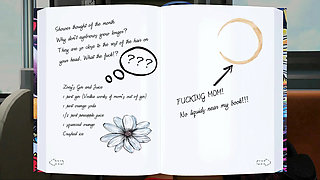 Shower thought of the month
Why don't eyebrows grow longer?
They are so close to the rest of the hair on
your head. What the fuck!?
???
Zoey's Gin and Juice
1 part gin (Vodka works if mom's out of gin)
1 part mango soda
1/2 part pineapple juice
1 squeezed orange
Crushed ice
FUCKING MOM!
No liquids near my book!!!